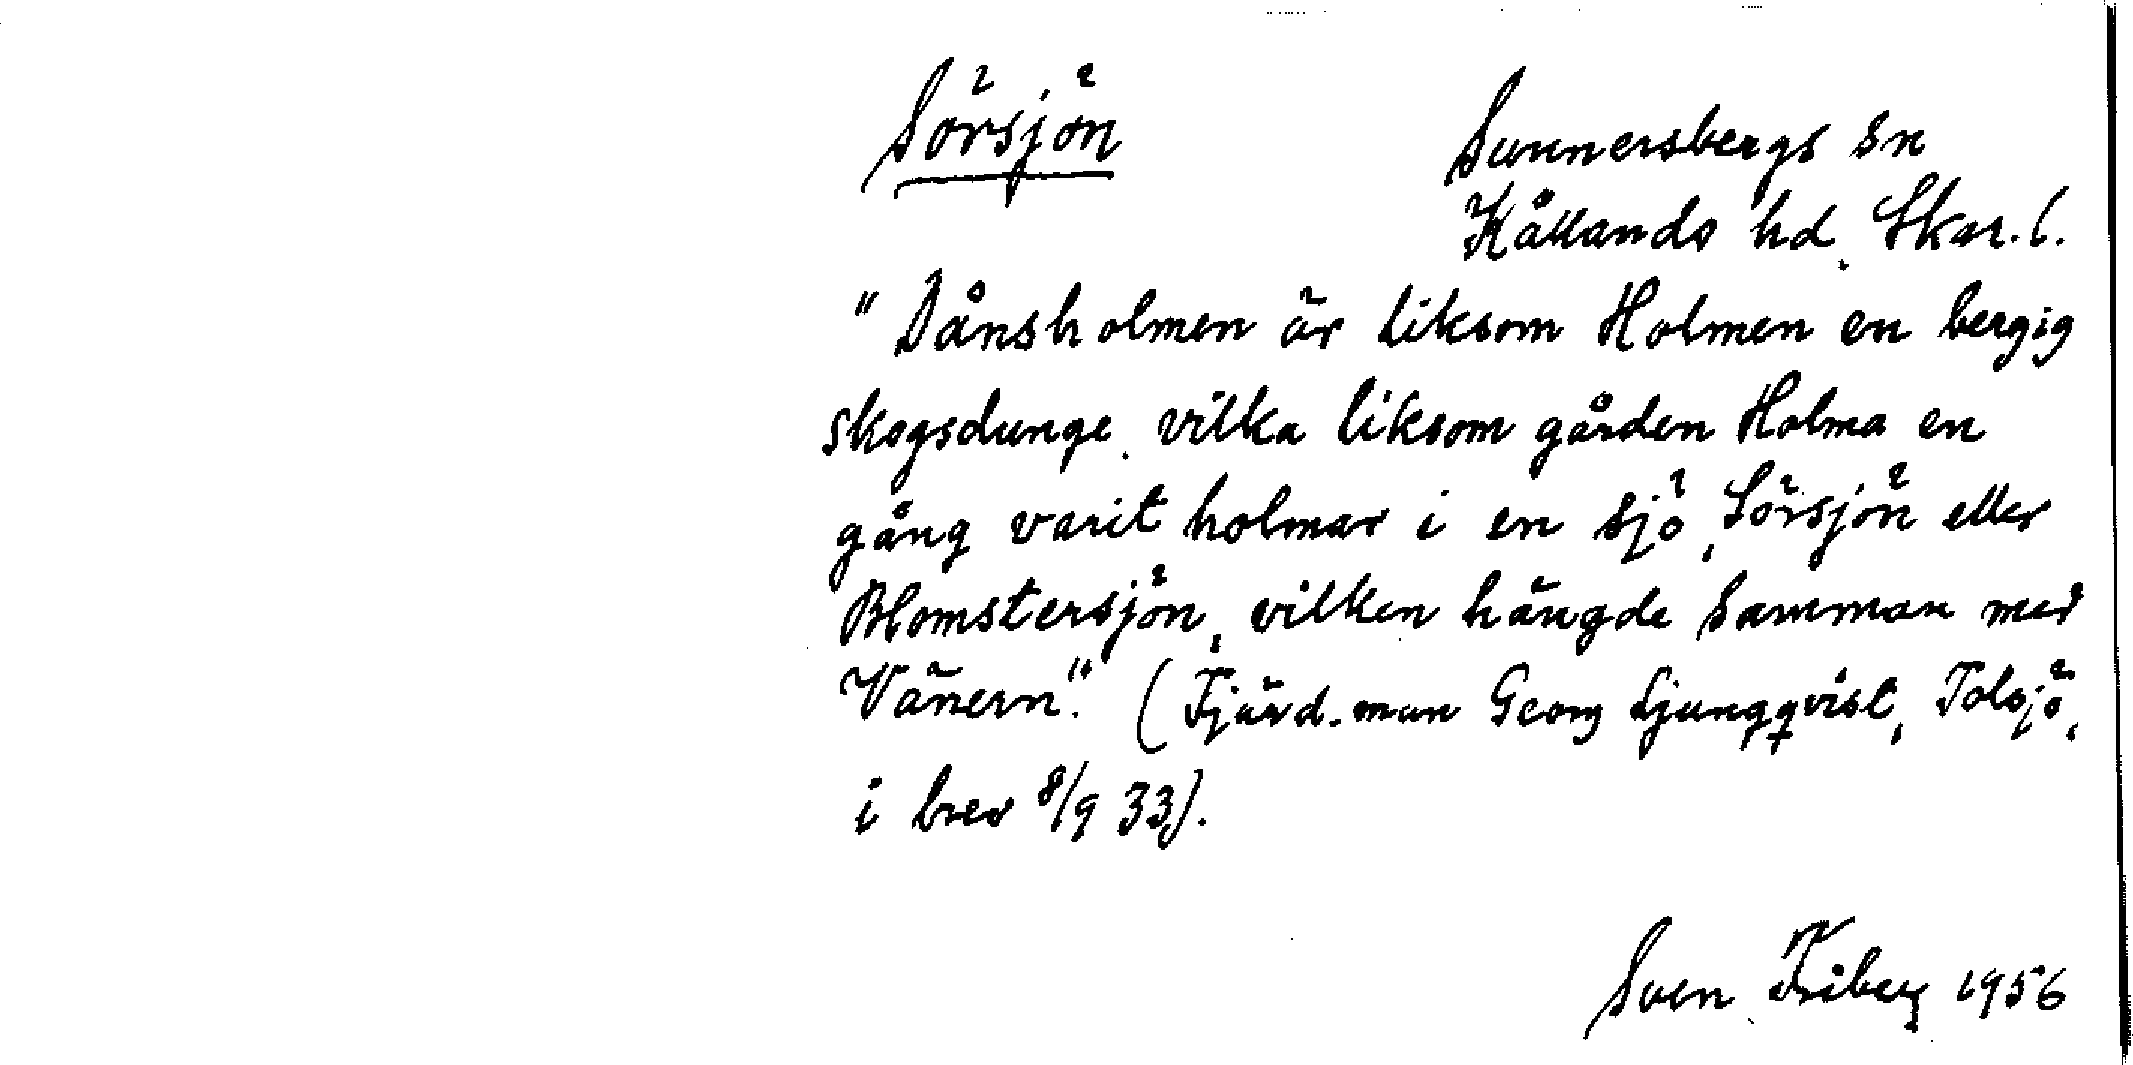 Sörsjön
Sunnersbergs sn
Kållands hd. Skar. l.
"Dånsholmen är liksom Holmen en bergig
skogsdunge, vilka liksom gården Holma en
gång varit holmar i en sjö, Sörsjön eller
Blomstersjön, vilken hängde samman med
Vänern." (Fjärd.man Georg Ljungqvist, Tolsjö,
i brev 8/9 33).
Sven Friberg 1956